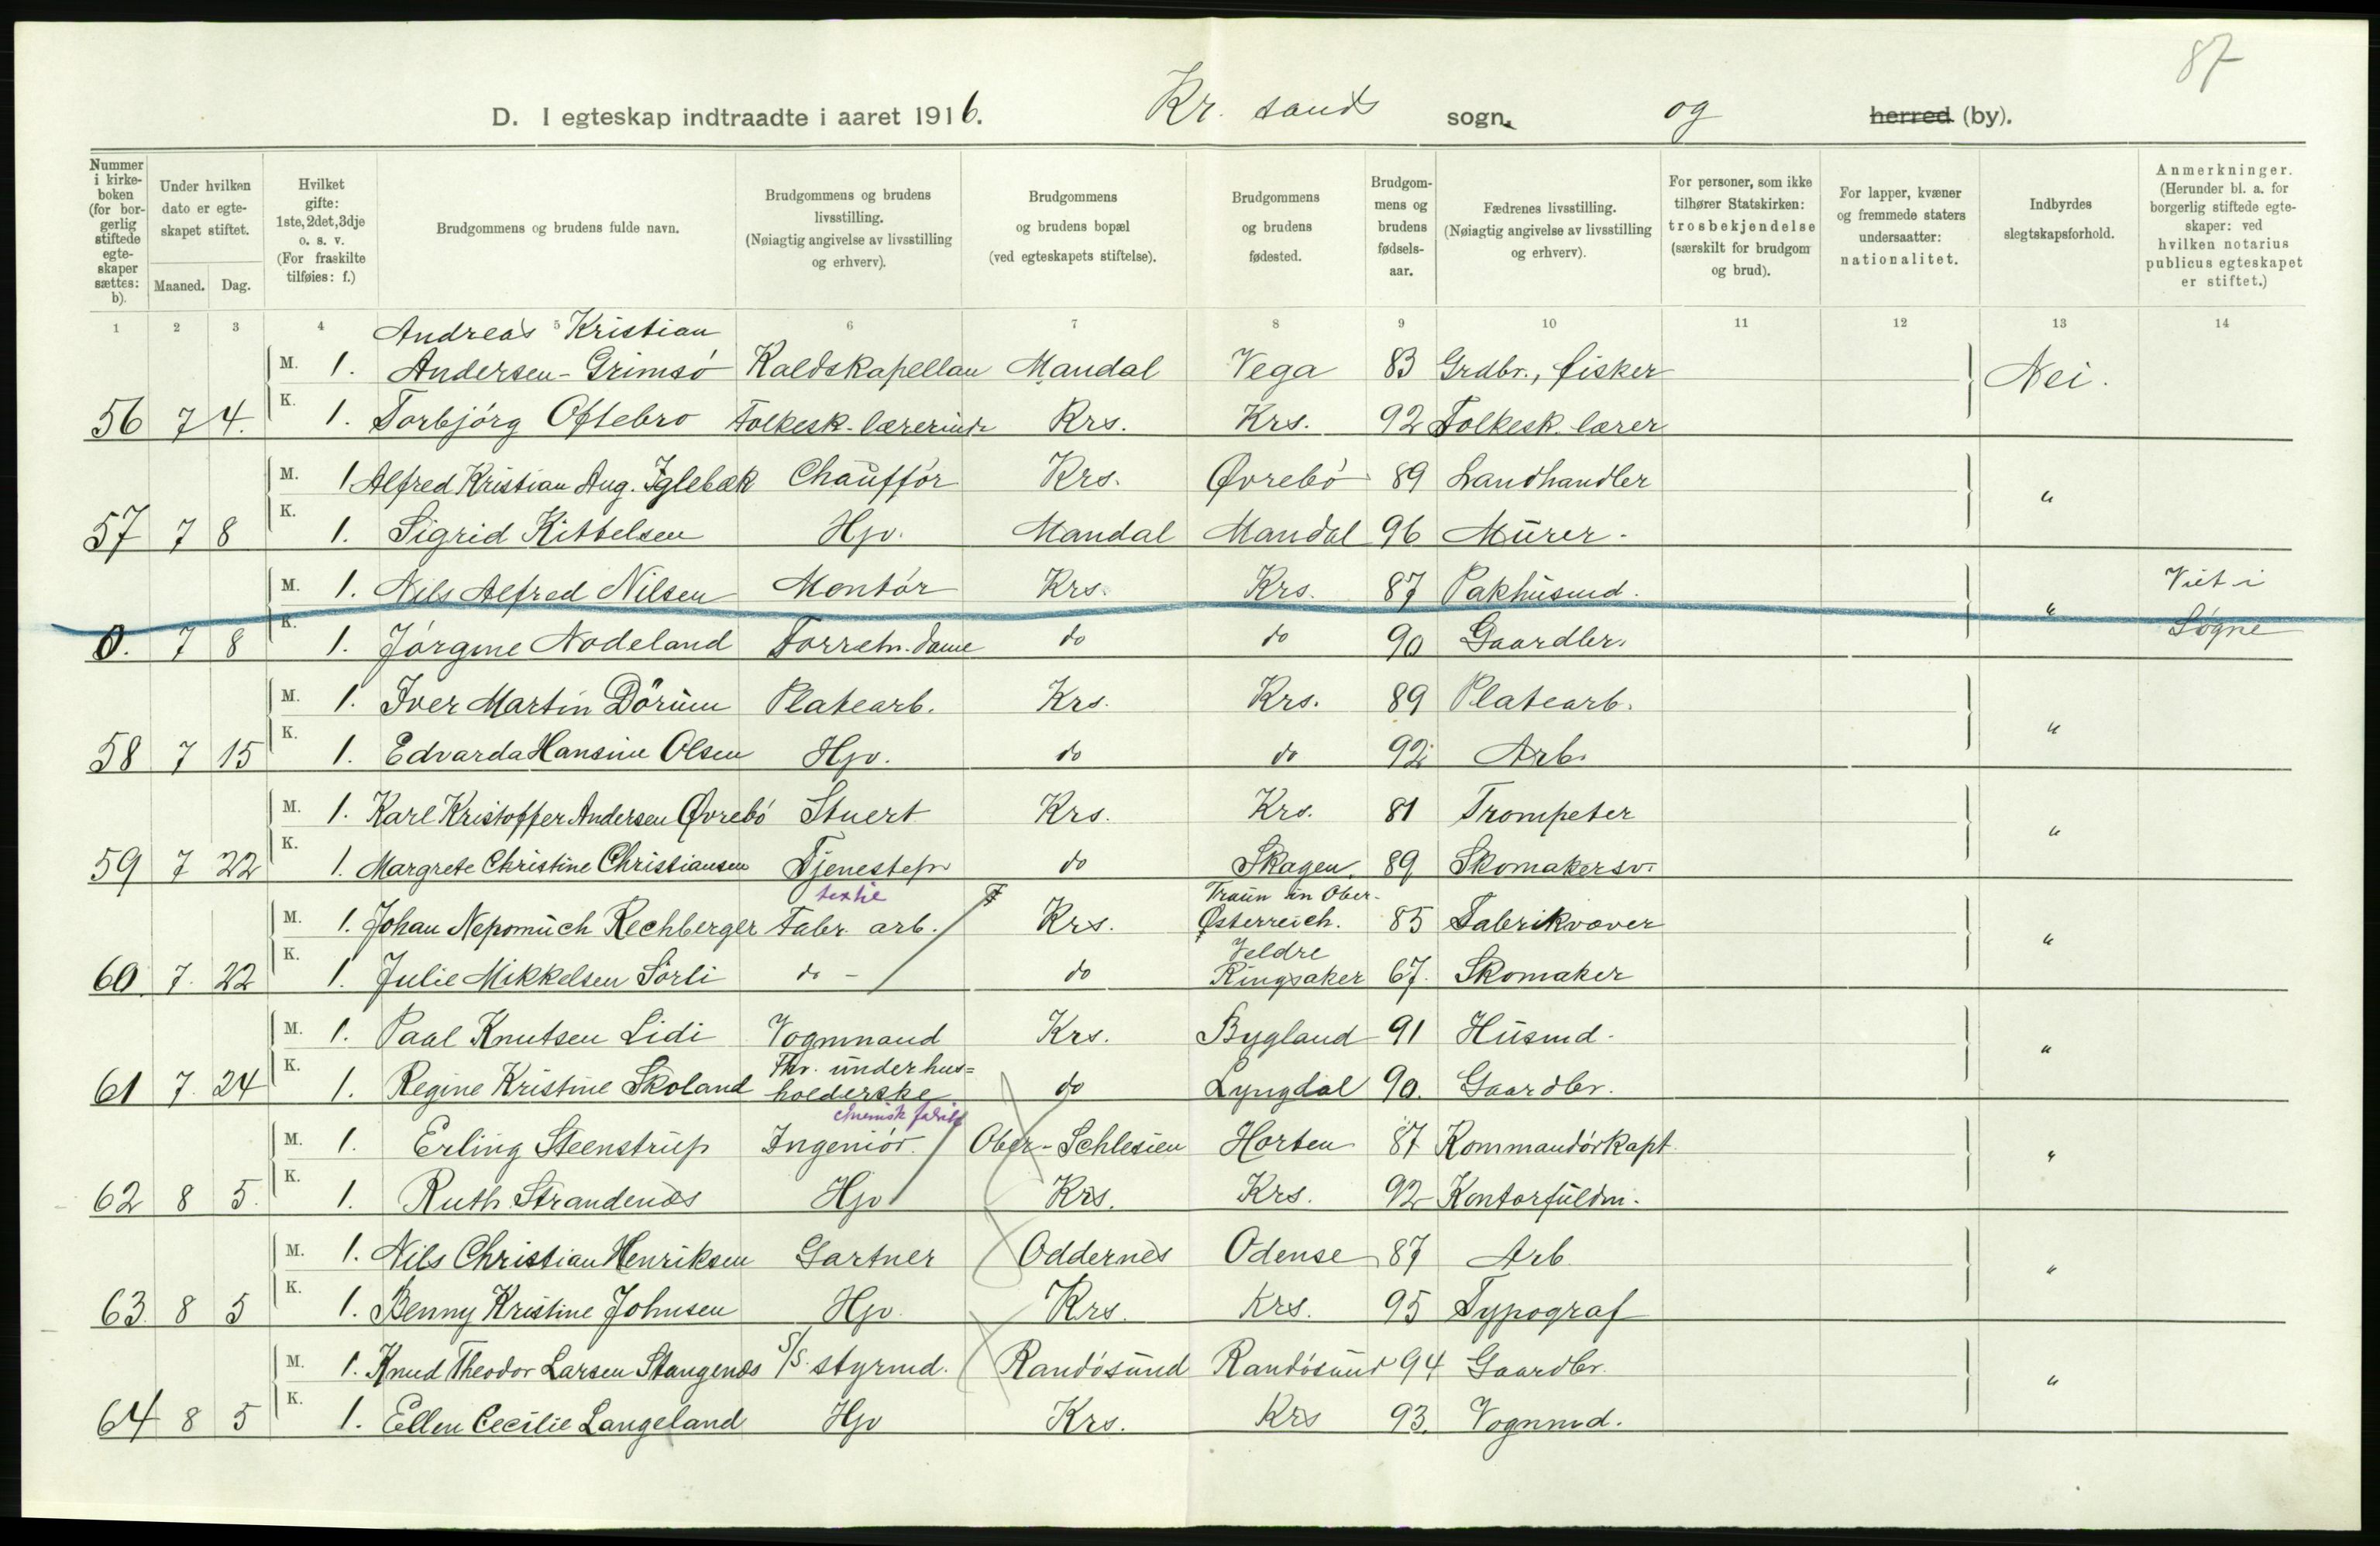 87
D. I egteskap indtraadte i aaret 1916. Kr. sands sogn. og herred (by).
Nummer i kirke-boken (for bor-gerlig stiftede egte-skaper sættes: b).
Under hvilken dato er egte-skapet stiftet.
Maaned. Dag.
Hvilket gifte: 1ste, 2det, 3dje o. s. v. (For fraskilte tilføies: f.)
Brudgommens og brudens fulde navn.
Brudgommens og brudens livsstilling. (Nøiagtig angivelse av livsstilling og erhverv).
Brudgommens og brudens bopæl (ved egteskapets stiftelse).
Brudgommens og brudens fødested.
Brudgom-mens og brudens fødsels-aar.
Fædrenes livsstilling. (Nøiagtig angivelse av livsstilling og erhverv).
For personer, som ikke tilhører Statskirken: trosbekjendelse (særskilt for brudgom og brud).
For lapper, kvæner og fremmede staters undersaatter: nationalitet.
Indbyrdes slegtskapsforhold.
Anmerkninger. (Herunder bl. a. for borgerlig stiftede egte-skaper: ved hvilken notarius publicus egteskapet er stiftet.)
1 2 3 4 5 6 7 8 9 10 11 12 13 14
Andreas Kristian
M. 1. Andersen-Grimsó Kaldskapellan Mandal Vega 83 Grdbr., fisker Nei.
56 7 4. K. 1. Torbjórg Oftebro Folkesk. lærerinde Krs. Krs. 92 Folkesk. lærer
M. 1 Alfred Kristian Aug. Iglebæk Chauffór Krs. Øvrebó 89 Landhandler "
57 7 8 K. 1. Sigrid Kittelsen Hjv. Mandal Mandal 96 Murer.
M. 1. Nils Alfred Nilsen Montór Krs. Krs. 87 Pakhusmd. " Viet i
0. 7 8 K. 1. Jórgine Nodeland Forretn. dame do do 90 Gaardbr. Søgne
M. 1. Iver Martin Dörum Platearb. Krs. Krs. 89 Platearb. "
58 7 15 K. 1. Edvarda Hansine Olsen Hjv. do do 92 Arb.
M. 1. Karl Kristoffer Andersen Øvrebó Stuert Krs. Krs. 81 Trompeter "
59 7 22 K. 1. Margrete Christine Christiansen Tjenestep. do Skagen. 89 Skomakersv.
textil Traun in Ober-
M. 1. Johan Nepomuch Rechberger Fabr. arb. Krs. Østerreich. 85 Fabrikvæver "
Veldre
60. 7. 22 K. 1. Julie Mikkelsen Sørli do - do Ringsaker 67. Skomaker
M. 1. Paal Knutsen Lidi Vognmand Krs. Bygland 91 Husmd. "
Fhv. underhus=
61 7. 24 K. 1. Regine Kristine Skoland holderske do Lyngdal 90. Gaardbr.
chemisk fabrik
M. 1. Erling Steenstrup Ingeniór. Ober-Schlesien Horten 87 Kommandórkapt. "
62 8 5. K. 1. Ruth Strandenæs Hjv Krs. Krs. 92 Kontorfuldm.
M. 1. Nils Christian Henriksen Gartner Oddernes Odense 87 Arb. "
63. 8 5 K. 1. Benny Kristine Johnsen Hjv. Krs. Krs. 95 Typograf
M. 1. Knud Theodor Larsen Stangenæs S/S. styrmd. Randósund Randósund 94 Gaardbr. "
64 8 5 K. 1. Ellen Cecilie Langeland Hjv Krs. Krs 93. Vognmd.